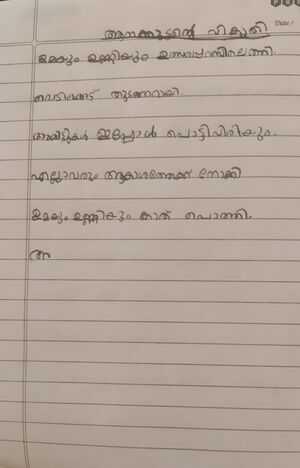 Date:
ആനക്കുട്ടന്റെ വികൃതി
ഉമയും ഉണ്ണിയും ഉത്സവപ്പറമ്പിലെത്തി.
വെടിക്കെട്ട് തുടങ്ങാറായി.
അമിട്ടുകൾ ഇപ്പോൾ പൊട്ടിവിരിയും.
എല്ലാവരും ആകാശത്തേക്ക് നോക്കി
ഉമയും ഉണ്ണിയും കാത് പൊത്തി.
ആ